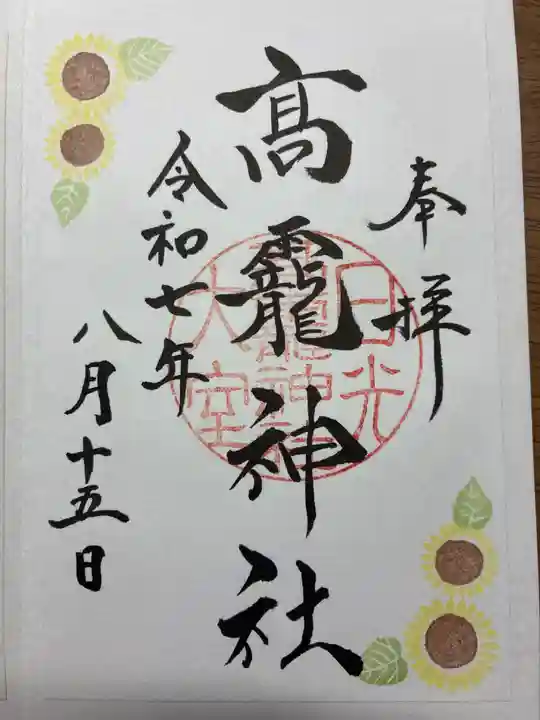 奉拝
髙龗神社
令和七年
八月十五日
日光
大室